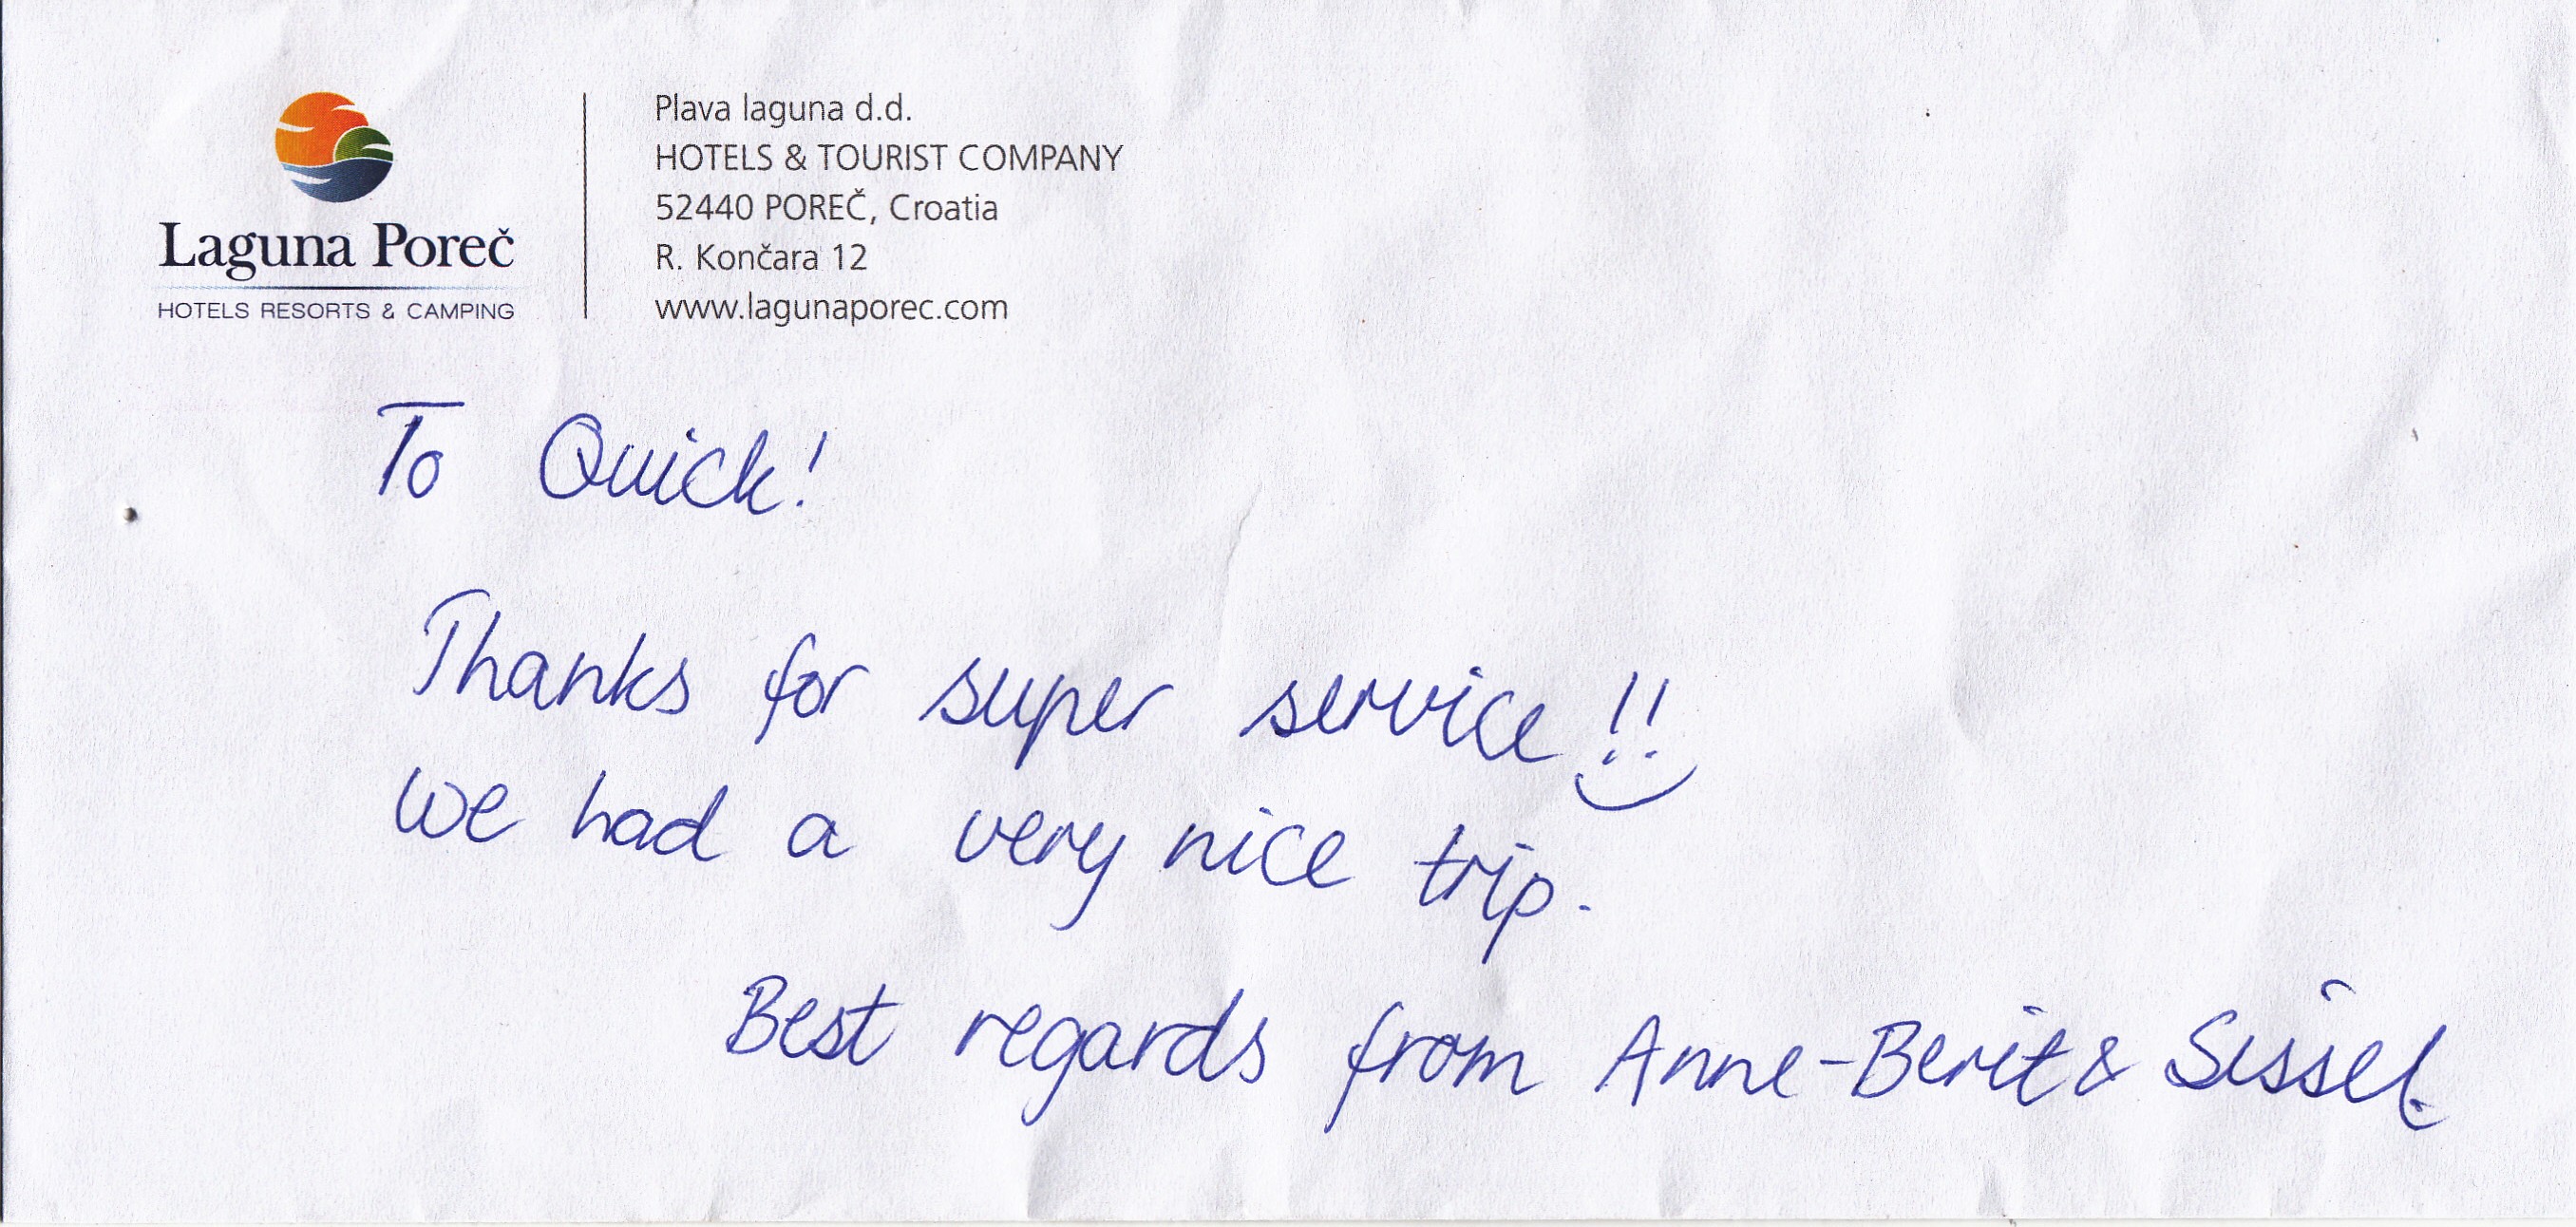 Laguna Poreč
HOTELS RESORTS & CAMPING
Plava laguna d.d.
HOTELS & TOURIST COMPANY
52440 POREČ, Croatia
R. Končara 12
www.lagunaporec.com
To Quick!
Thanks for super service!!
We had a very nice trip.
Best regards from Anne-Berit & Sissel.